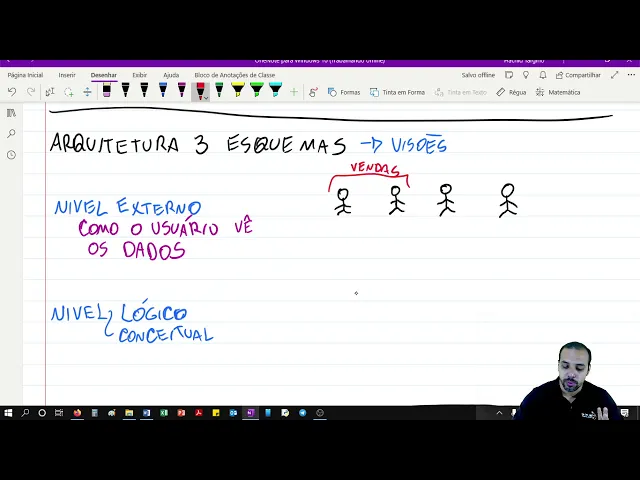 OneNote para Windows 10 (Trabalhando offline)
Página Inicial Inserir Desenhar Exibir Ajuda Bloco de Anotações de Classe Salvo offline Compartilhar
Formas Tinta em Forma Tinta em Texto Régua Matemática
ARQUITETURA 3 ESQUEMAS → VISÕES
VENDAS
NIVEL EXTERNO
COMO O USUÁRIO VÊ
OS DADOS
NIVEL LÓGICO
CONCEITUAL